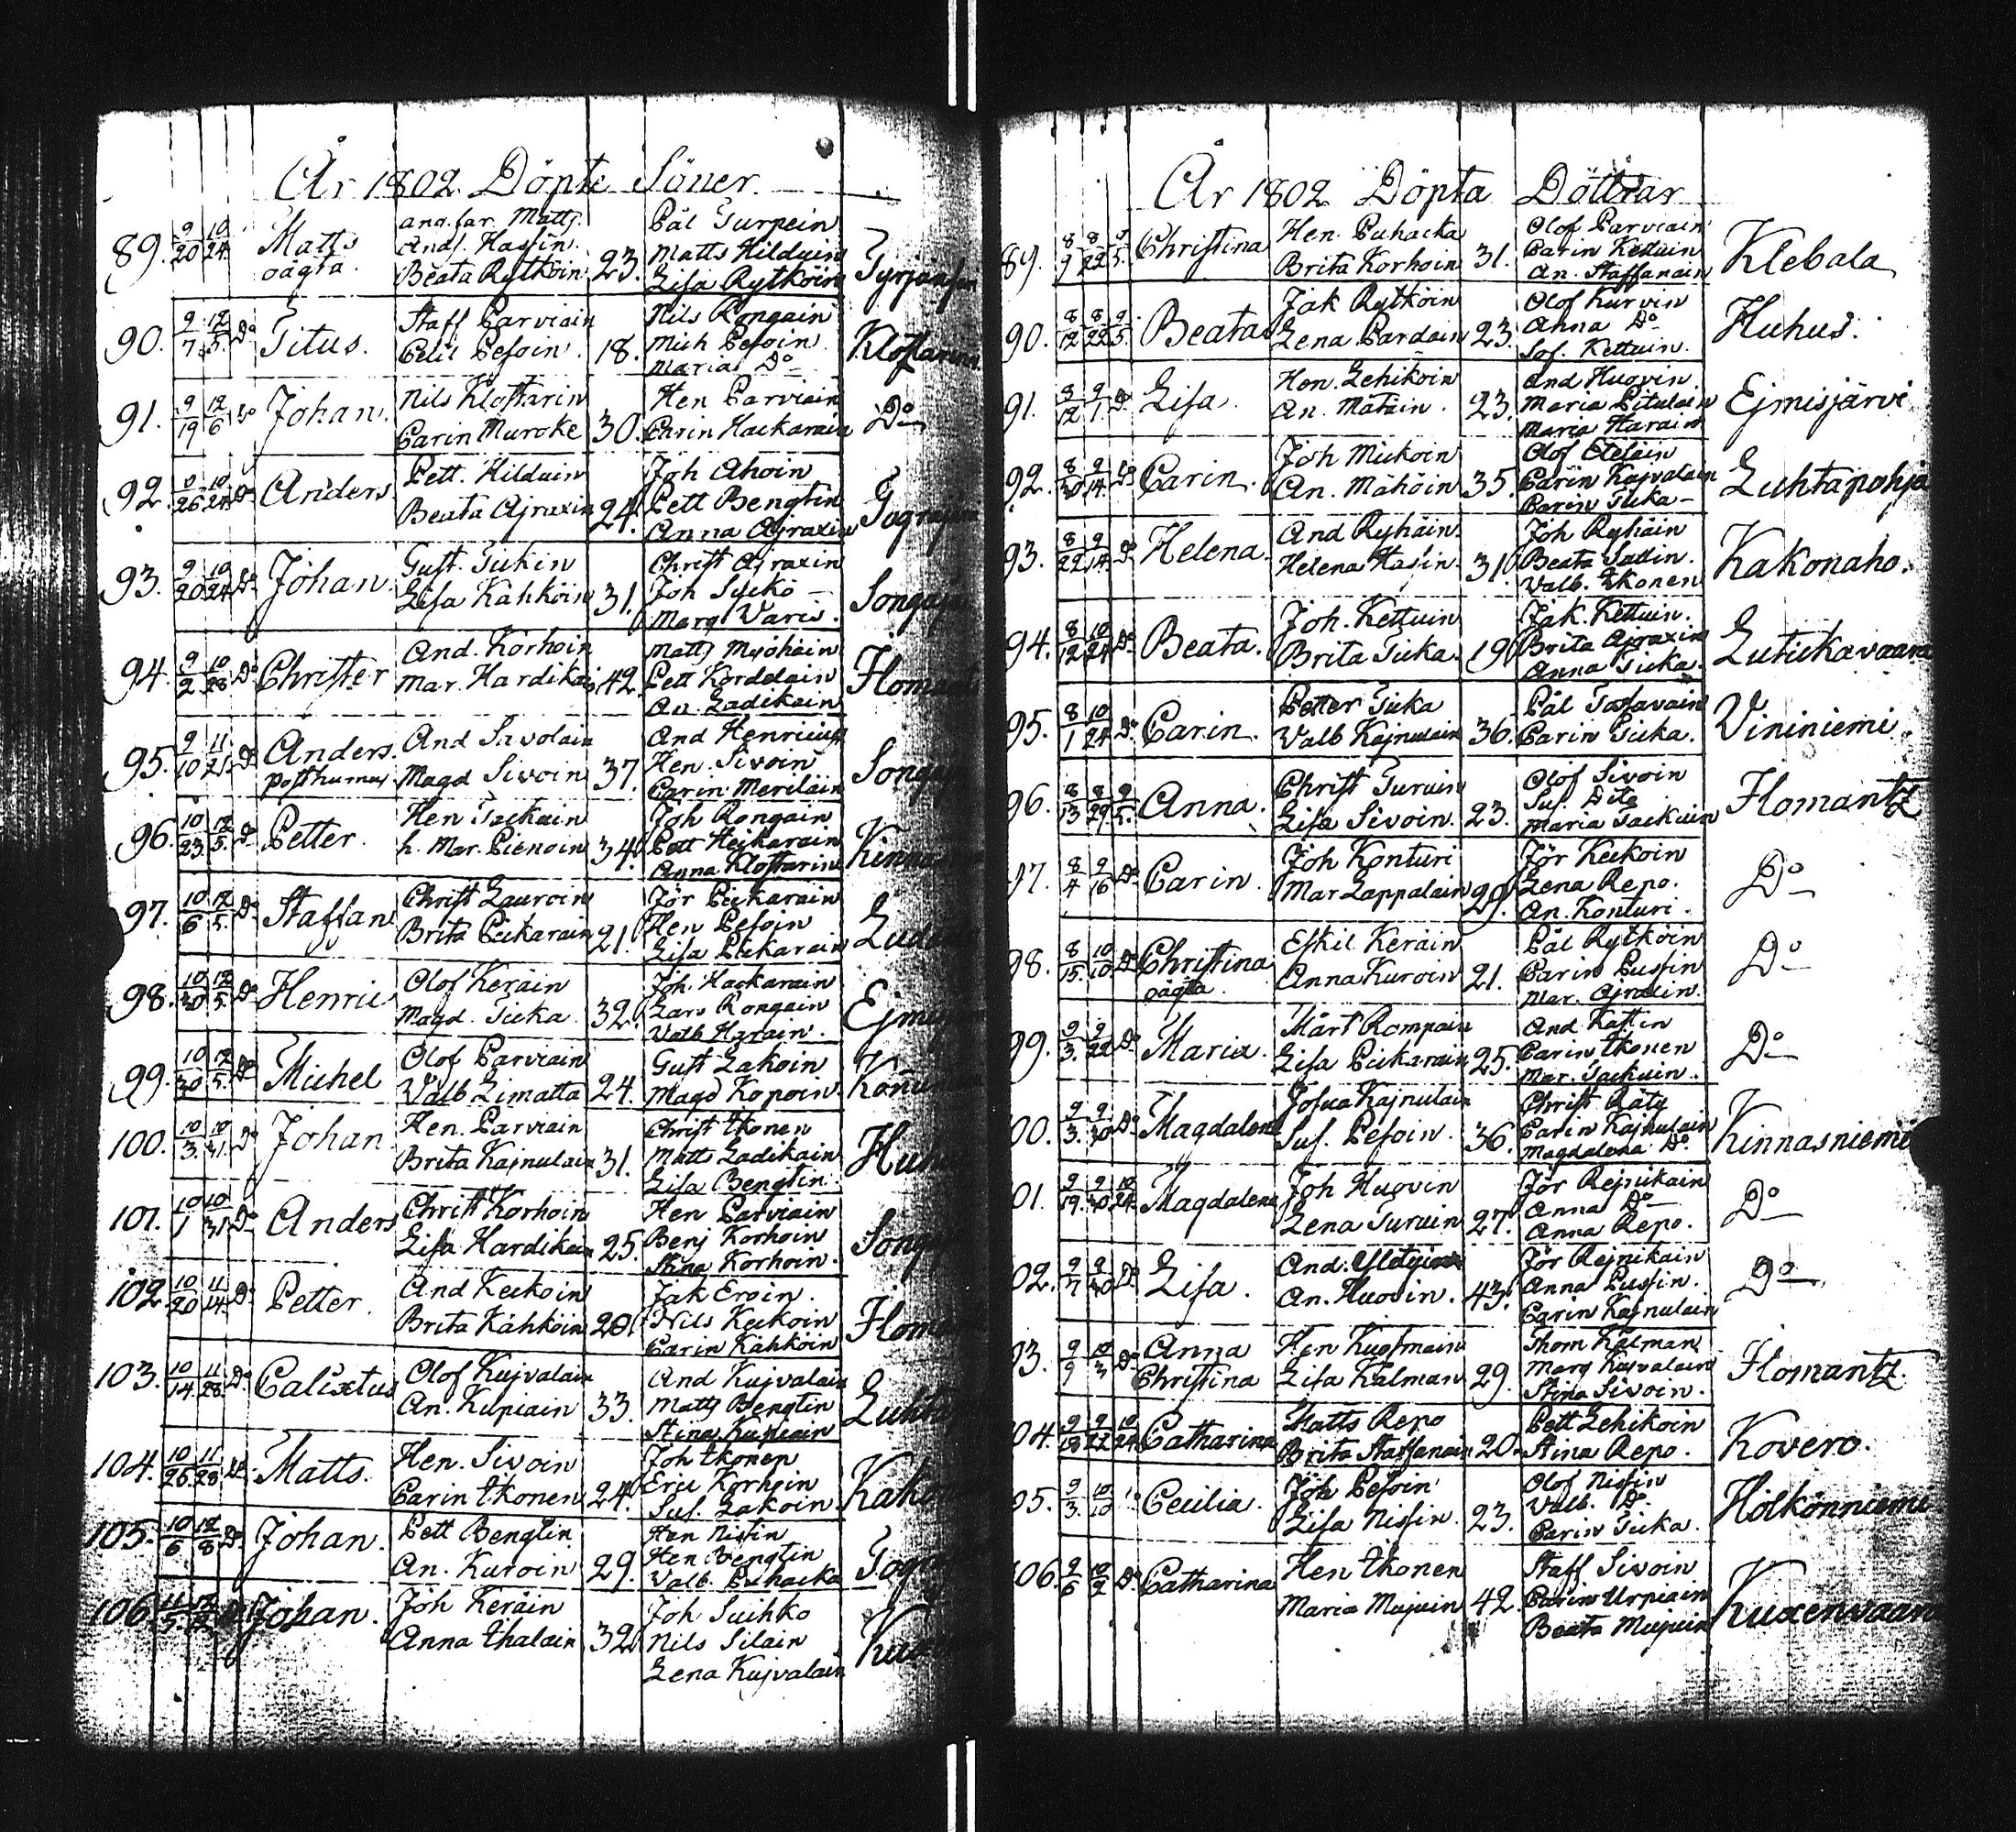 År 1802 Döpte Söner
89. 9/20 10/24 Matts oägta. ang. far Matts And. Hassin. Beata Rytköin 23. Pål Turpein Matts Hilduin Lisa Rytköin
90. 9/7 12/5 Do Titus. Staff Parviain Celil Pesoin 18. Nils Rongain Mich Pesoin Maria Do
91. 9/19 12/6 Do Johan. Nils Klostarin Carin Muroke 30. Hen Parviain Carin Hackarain Do
92. 10/24 Do Anders Pett. Hilduin Beata Ajraxin 24. Joh Ahoin Pett Bengtin Anna Ajraxin
93. 9/20 10/24 Do Johan. Gust. Tickin Lisa Kähköin 31. Christ Ajraxin Joh Sycko Marg Varis.
94. 9/2 10/28 Do Christer And. Korhoin Mar. Hardikai 42. Matts Myöhäin Pett Kordelain An. Ladikain
95. 9/10 11/21 Do Anders posthumus And Savolain Magd Sivoin 37. And Henricius Hen. Sivoin Carin Meriläin
96. 10/23 12/5 Do Petter. Hen Tackuin h. Mar. Pienoin 34. Joh Rongain Pett Hejkarain Anna Klostarin
97. 10/6 12/5 Do Staffan Christ Lauroin Brita Pickarain 21. Jör Pickarain Hen Pesoin Lisa Pickarain
98. 10/30 12/5 Do Henric Olof Keräin Magd. Ticka 32. Joh. Hackarain Lars Rongain Valb Harain.
99. 10/30 12/5 Do Michel Olof Parviain Valb Limatta 24. Gust Lakoin Magd Kopoin.
100. 10/3 10/31 Do Johan Hen. Parviain Brita Kajnulain 31. Christ Ikonen Matts Ladikain Lisa Bengtin
101. 10/1 10/31 Do Anders Christ Korhoin Lisa Hardikain 25. Hen Parviain Benj Korhoin Stina Korhoin.
102. 10/20 11/14 Do Petter. And Keckoin Brita Kähköin 20. Jak Eroin. Nils Keckoin Carin Kähköin
103. 10/14 11/28 Do Calixtus Olof Kujvalain An. Kupiain 33. And Kujvalain Matts Bengtin Stina Kupiain
104. 10/26 11/28 Do Matts. Hen. Sivoin Carin Ikonen 24. Joh Ikonen Eric Korhoin Sus. Lakoin
105. 10/6 12/8 Do Johan. Pett Bengtin An. Kuroin 29. Han Nissin Hen Bengtin Valb. Puhacka
106. Johan. Joh Keräin Anna Ihalain 32. Joh Suihko Nils Silain Lena Kujvalain
År 1802 Döpta Döttrar
89. 8/9 8/22 9/5 Christina Hen. Puhacka Brita Korhoin 31. Olof Parviain Carin Ketuin An. Staffanain Klebala
90. 8/12 8/22 9/5 Beata Jak Rytköin Lena Pardain 23. Olof Kurvin Anna Do Sof. Kettuin. Huhus.
91. 8/12 9/1 Do Lisa. Hen. Lehikoin An. Mätäin. 23. And Huovin. Maria Pitulain Maria Harain Ejmisjärvi
92. 8/30 9/14 Do Carin. Joh Mickoin An. Mähöin 35. Olof Eteläin Carin Kajvalain Carin Ticka Luhtapohja
93. 8/22 9/14 Do Helena. And Ryhäin. Helena Hasin. 31. Joh Ryhäin Beata Sallin. Valb. Ikonen Kakonaho.
94. 8/12 10/24 Do Beata. Joh. Kettuin Brita Ticka. 19. Jak. Kettuin. Brita Ajraxin Anna Ticka. Lutickavaara
95. 8/1 10/24 Do Carin. Petter Ticka Valb Kajnulain 36. Pål Tossavain Carin Ticka. Vininiemi.
96. 8/13 8/29 9/5 Anna. Christ Turuin Lisa Sivoin. 23. Olof Sivoin Sus. Dito Maria Tackuin Ilomantz
97. 8/4 9/16 Do Carin. Joh Konturi Mar Lappalain 29. Jör Keckoin Lena Repo. An. Konturi. Do
98. 8/15 10/10 Do Christina oägta Eskil Keräin Anna Kuroin 21. Pål Rytköin Carin Pussin Mar. Ajraxin. Do
99. 9/3 9/22 Do Maria. Mårt Rompain Lisa Pickarain 25. And. Kastin Carin Ikonen Mar. Tackuin. Do
100. 9/3 9/30 Do Magdalena Josua Kajnulain Sus. Pesoin. 36. Christ Räty Carin Kajnulain Magdalena Do Kinnasniemi
101. 9/19 9/30 10/24 Magdalena Joh Huovin Lena Turuin 27. Jör Rejnikain Anna Do Anna Repo. Do
102. 9/7 9/30 Do Lisa. And. An. Huovin. 43. Jör Rejnikain Anna Pussin. Carin Kajnulain Do
103. 9/9 10/3 Do Anna Christina Hen Kuosmain Lisa Kalman 29. Thom Kalman Marg Kujvalain Stina Sivoin. Ilomantz.
104. 9/18 9/22 10/24 Catharina Matts Repo Brita Staffanain 20. Pett Lehikoin Stina Repo. Kovero.
105. 9/3 10/10 Cecilia. Joh Pesoin Lisa Nissin. 23. Olof Nissin Valb. Do. Carin Ticka. Holkönniemi
106. 9/6 10/2 Do Catharina Hen Ikonen Maria Mujuin 42. Staff Sivoin Carin Urpiain Beata Mujuin Kuxenvaara